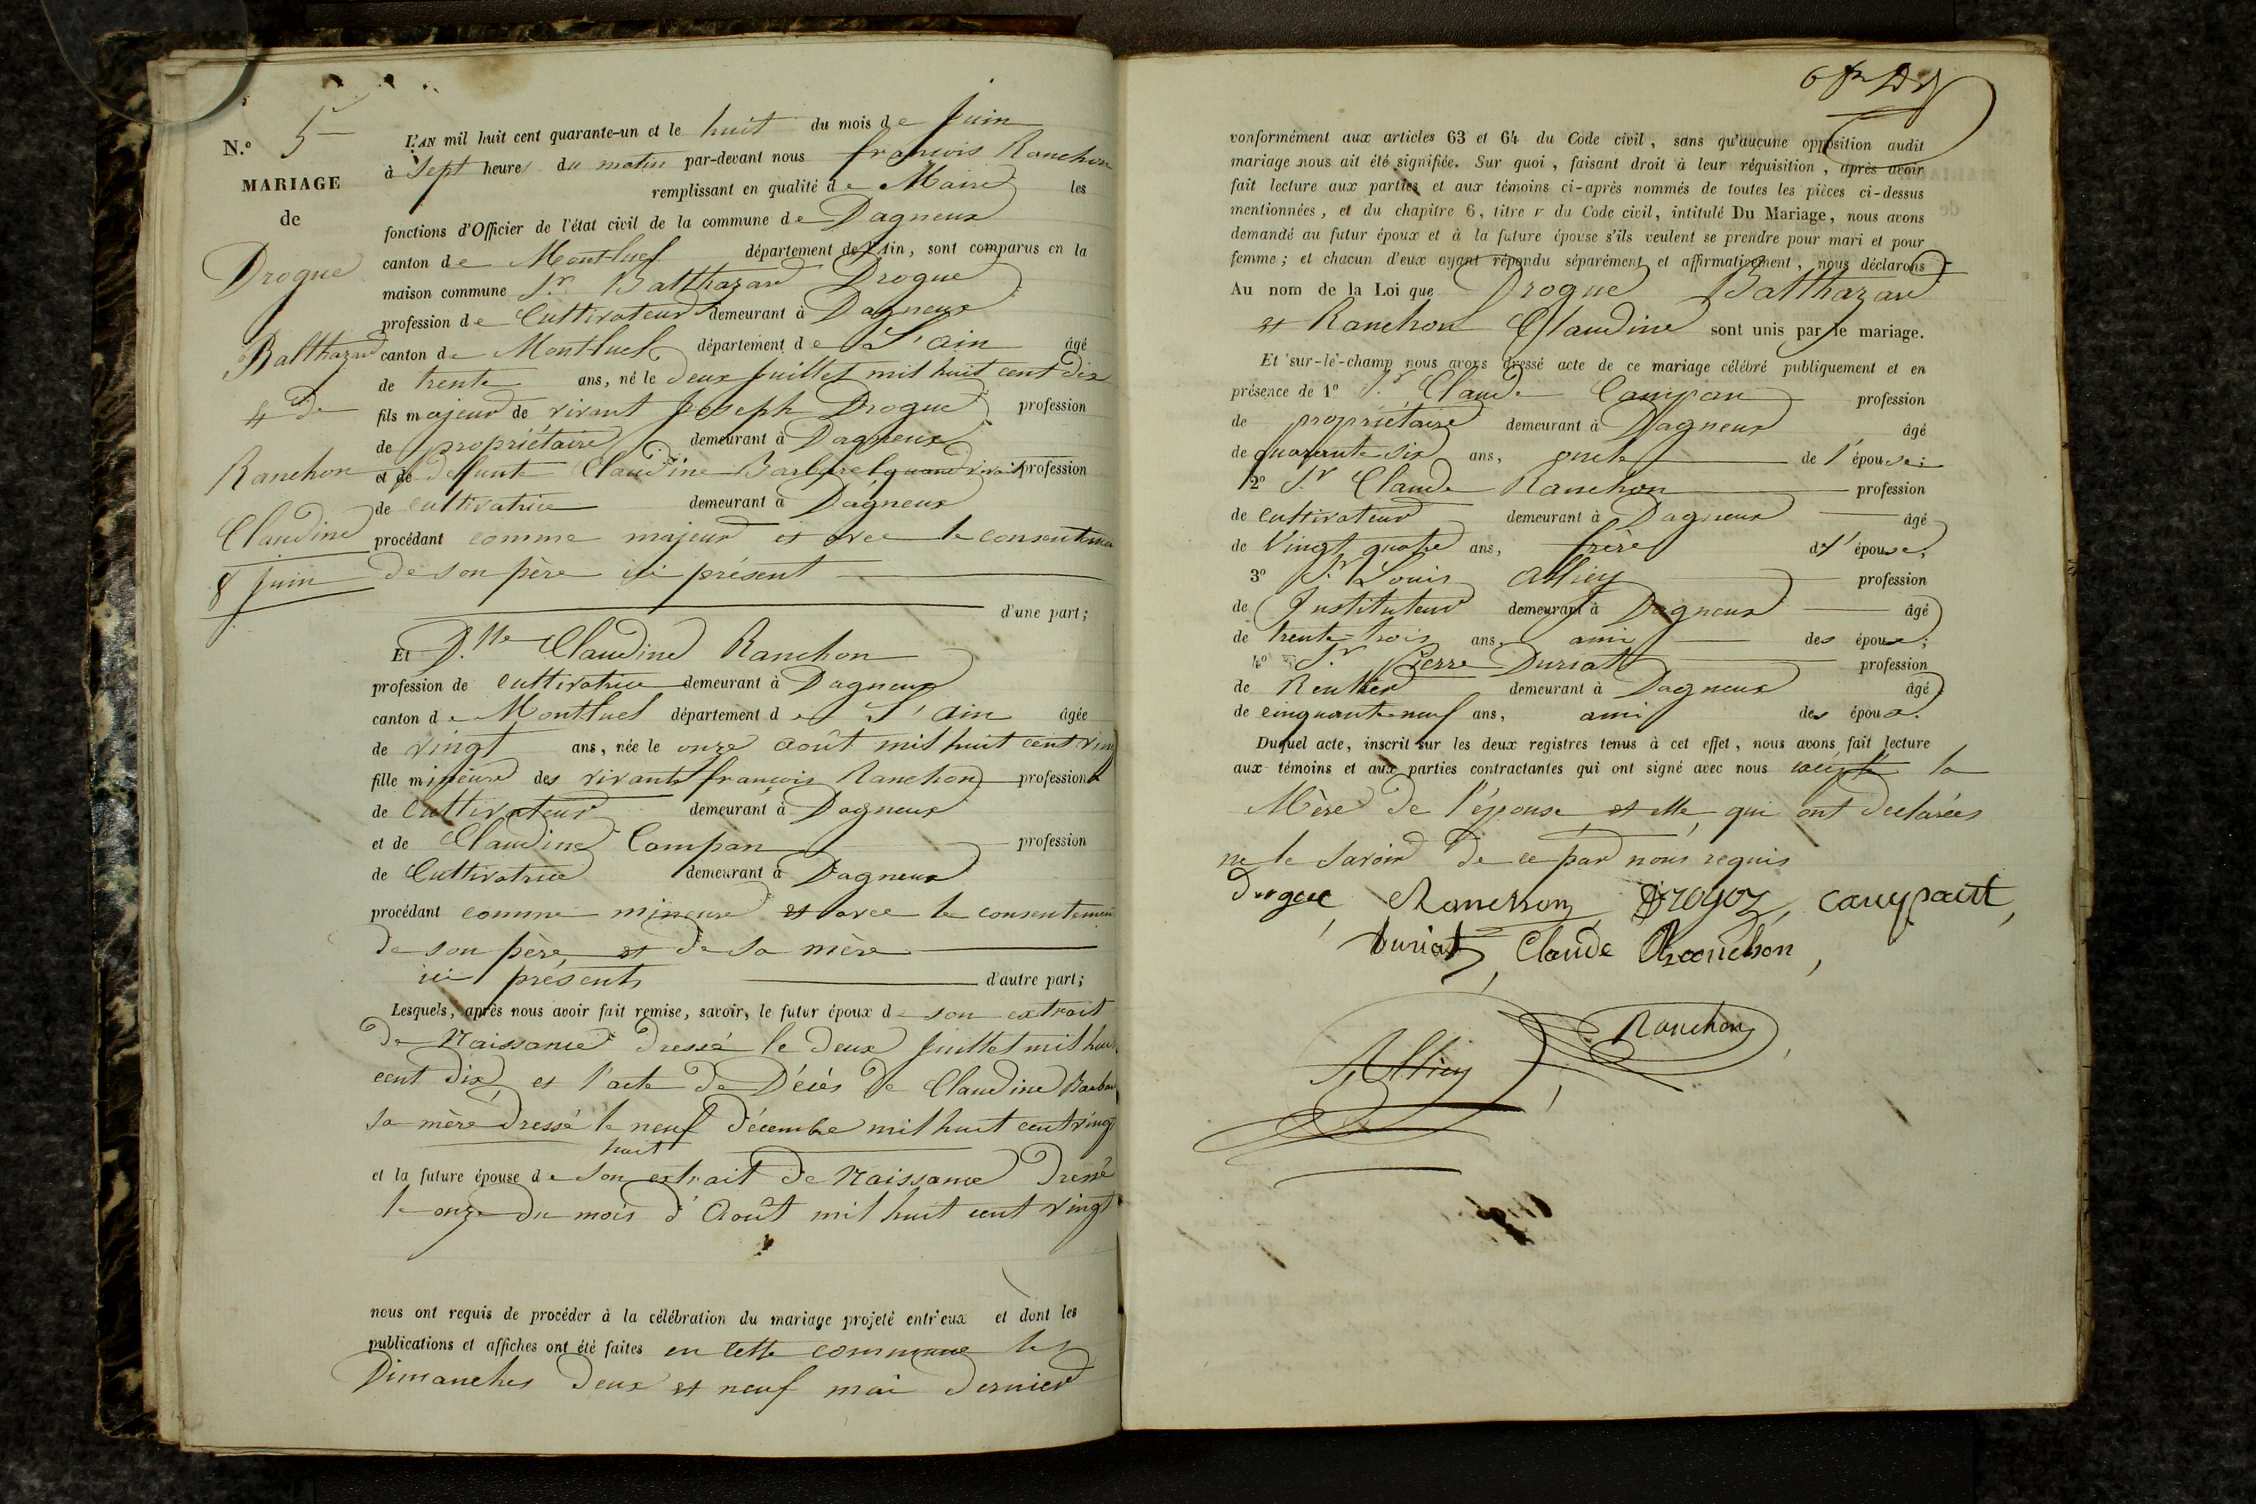 N.º 5
MARIAGE
de
Drogue
Balthazard
&
Ranchon
Claudine
8 Juin
L'AN mil huit cent quarante-un et le huit du mois de Juin
à Sept heures du matin par-devant nous françois Ranchon
remplissant en qualité de Maire les
fonctions d'Officier de l'état civil de la commune de Dagneux
canton de Montluel département de l'Ain, sont comparus en la
maison commune Sr. Balthazard Drogue
profession de Cultivateur demeurant à Dagneux
canton de Montluel département de L'ain âgé
de trente ans, né le deux Juillet mil huit cent dix
fils majeur de vivant Joseph Drogue profession
de propriétaire demeurant à Dagneux
et de defunte Claudine Barbaret quand vivait profession
de cultivatrice demeurant à Dagneux
procédant comme majeur et avec le consentement
de son père ici présent
d'une part;
Et D.lle Claudine Ranchon
profession de Cultivatrice demeurant à Dagneux
canton de Montluel département de L'ain âgée
de vingt ans, née le onze août mil huit cent vingt
fille mineure des vivants françois Ranchon profession
de Cultivateur demeurant à Dagneux
et de Claudine Campan profession
de Cultivatrice demeurant à Dagneux
procédant comme mineure et avec le consentement
de son père et de sa mère
ici présents d'autre part;
Lesquels, après nous avoir fait remise, savoir, le futur époux de son extrait
de Naissance dressé le deux Juillet mil huit
cent dix, et l'acte de Décès de Claudine Barbar
sa mère dressé le neuf décembre mil huit cent vingt
huit
et la future épouse de son extrait de Naissance dressé
le onze du mois d'Août mil huit cent vingt
nous ont requis de procéder à la célébration du mariage projeté entr'eux et dont les
publications et affiches ont été faites en cette commune les
Dimanches deux et neuf mai dernier
vonformément aux articles 63 et 64 du Code civil, sans qu'aucune opposition audit
mariage nous ait été signifiée. Sur quoi, faisant droit à leur réquisition, après avoir
fait lecture aux parties et aux témoins ci-après nommés de toutes les pièces ci-dessus
mentionnées, et du chapitre 6, titre v du Code civil, intitulé Du Mariage, nous avons
demandé au futur époux et à la future épouse s'ils veulent se prendre pour mari et pour
femme; et chacun d'eux ayant répondu séparément et affirmativement, nous déclarons
Au nom de la Loi que Drogue Balthazard
et Ranchon Claudine sont unis par le mariage.
Et sur-le-champ nous avons dressé acte de ce mariage célébré publiquement et en
présence de 1º Sr Claude Campan profession
de propriétaire demeurant à Dagneux âgé
de quarante six ans, oncle de l'épouse;
2º Sr Claude Ranchon profession
de Cultivateur demeurant à Dagneux âgé
de Vingt quatre ans, frère de l'épouse;
3º Sr Louis Alliey profession
de Instituteur demeurant à Dagneux âgé
de trente-trois ans, ami des époux;
4º Sr Pierre Duriat profession
de Rentier demeurant à Dagneux âgé
de cinquante neuf ans, ami des époux.
Duquel acte, inscrit sur les deux registres tenus à cet effet, nous avons fait lecture
aux témoins et aux parties contractantes qui ont signé avec nous excepté la
Mère de l'épouse et elle, qui ont declarées
ne le savoir de ce par nous requis
Drogue, Ranchon, Drogoz, Campant,
Duriat, Claude Ranchon,
Alliey, Ranchon,